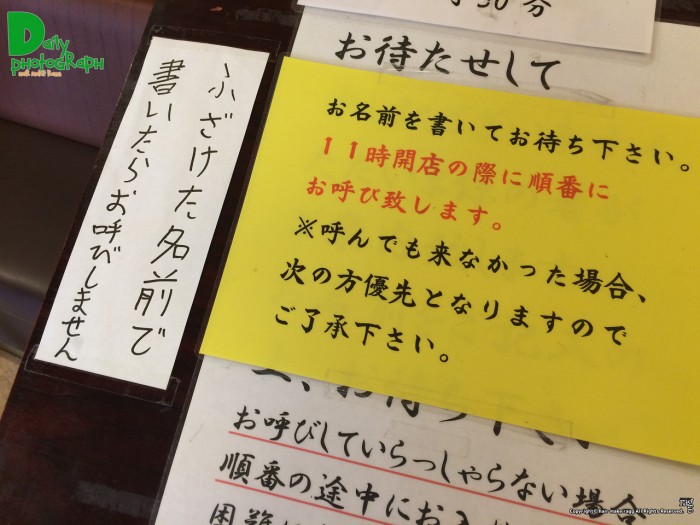 Daily
photograph
お待たせして
お名前を書いてお待ち下さい。
11時開店の際に順番に
お呼び致します。
※呼んでも来なかった場合、
次の方優先となりますので
ご了承下さい。
ふざけた名前で
書いたらお呼びしません
お呼びしていらっしゃらない場合
順番の途中にお